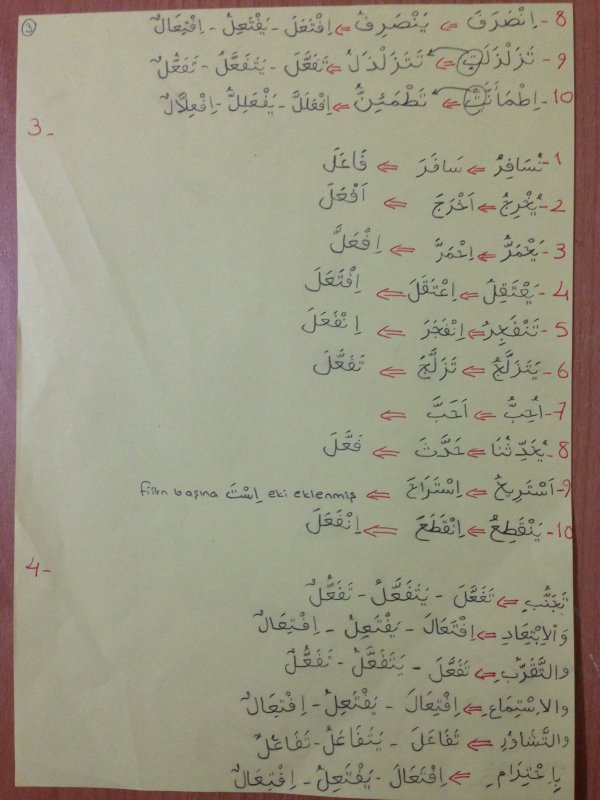 3
8- اِنْصَرَفَ ⇐ يَنْصَرِفُ ⇐ اِفْتَعَلَ - يَفْتَعِلُ - اِفْتِعَالٌ
9- تَزَلْزَلَتِ ⇐ تَتَزَلْزَلُ ⇐ تَفَعَّلَ - يَتَفَعَّلُ - تَفَعُّلٌ
10- اِطْمَأَنَّتْ ⇐ تَطْمَئِنُّ ⇐ اِفْعَلَلَّ - يَفْعَلِلُّ - اِفْعِلْلَالٌ
3-
1- نُسَافِرُ ⇐ سَافَرَ ⇐ فَاعَلَ
2- يُخْرِجُ ⇐ اَخْرَجَ ⇐ اَفْعَلَ
3- يَحْمَرُّ ⇐ اِحْمَرَّ ⇐ اِفْعَلَّ
4- يَعْتَقِلُ ⇐ اِعْتَقَلَ ⇐ اِفْتَعَلَ
5- تَنْفَجِرُ ⇐ اِنْفَجَرَ ⇐ اِنْفَعَلَ
6- يَتَزَلَّجُ ⇐ تَزَلَّجَ ⇐ تَفَعَّلَ
7- اُحِبُّ ⇐ اَحَبَّ ⇐
8- يُحَدِّثُنَا ⇐ حَدَّثَ ⇐ فَعَّلَ
9- اَسْتَرِيحُ ⇐ اِسْتَرَاحَ ⇐ fiilin başına اِسْتَ eki eklenmiş
10- يَنْقَطِعُ ⇐ اِنْقَطَعَ ⇐ اِنْفَعَلَ
4-
تَجَنُّبِ ⇐ تَفَعَّلَ - يَتَفَعَّلُ - تَفَعُّلٌ
وَالاِبْتِعَادِ ⇐ اِفْتَعَالَ - يَفْتَعِلُ - اِفْتِعَالٌ
والتَّقَرُّبِ ⇐ تَفَعَّلَ - يَتَفَعَّلُ - تَفَعُّلٌ
والاِسْتِمَاعِ ⇐ اِفْتِعَالَ - يَفْتَعِلُ - اِفْتِعَالٌ
والتَّشَاوُرِ ⇐ تَفَاعَلَ - يَتَفَاعَلُ - تَفَاعُلٌ
بِاِحْتِرَامِ ⇐ اِفْتَعَالَ - يَفْتَعِلُ - اِفْتِعَالٌ